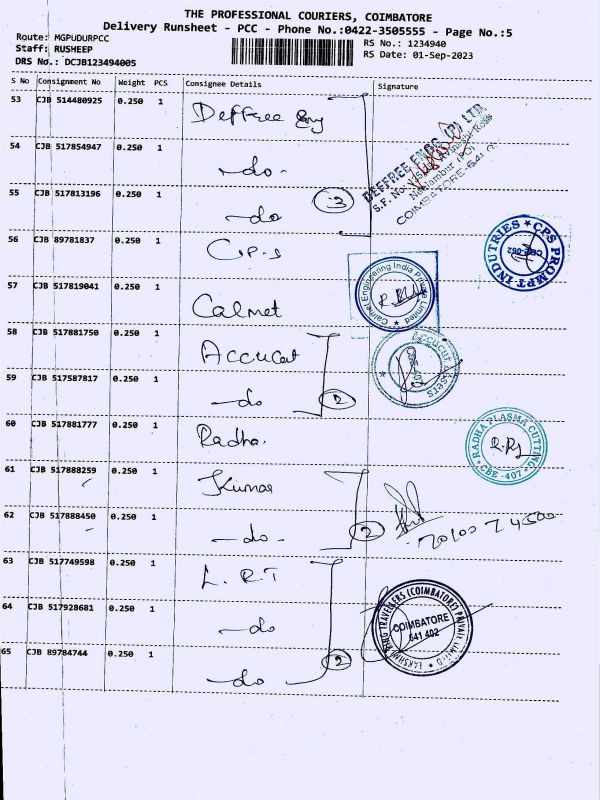 THE PROFESSIONAL COURIERS, COIMBATORE
Delivery Runsheet - PCC - Phone No.:0422-3505555 - Page No.:5
Route: MGPUDURPCC
RS No.: 1234940
Staff: RUSHEEP
RS Date: 01-Sep-2023
DRS No.: DCJB123494005
S No Consignment No Weight PCS Consignee Details Signature
53 CJB 514480925 0.250 1 Deffree Eng
54 CJB 517854947 0.250 1 -do-
55 CJB 517813196 0.250 1 -do 3
DEFFREE ENGG (P) LTD
COIMBATORE-641
56 CJB 89781837 0.250 1 C.P.S
CPS PROMPT INDUTRIES
CBE-062
57 CJB 517819041 0.250 1 Calmet
Calmet Engineering India Private Limited
58 CJB 517881750 0.250 1 Accucut
59 CJB 517587817 0.250 1 -do 2
ACCUCUT ASSETS
CBE-407
60 CJB 517881777 0.250 1 Radha.
RADHA PLASMA CUTTING
CBE-407
61 CJB 517888259 0.250 1 Kumar
62 CJB 517888450 0.250 1 -do- 2
63 CJB 517749598 0.250 1 L.R.T
64 CJB 517928681 0.250 1 -do
65 CJB 89784744 0.250 1 -do 2
TRAVELLERS (COIMBATORE) PRIVATE LIMITED
COIMBATORE
641 402